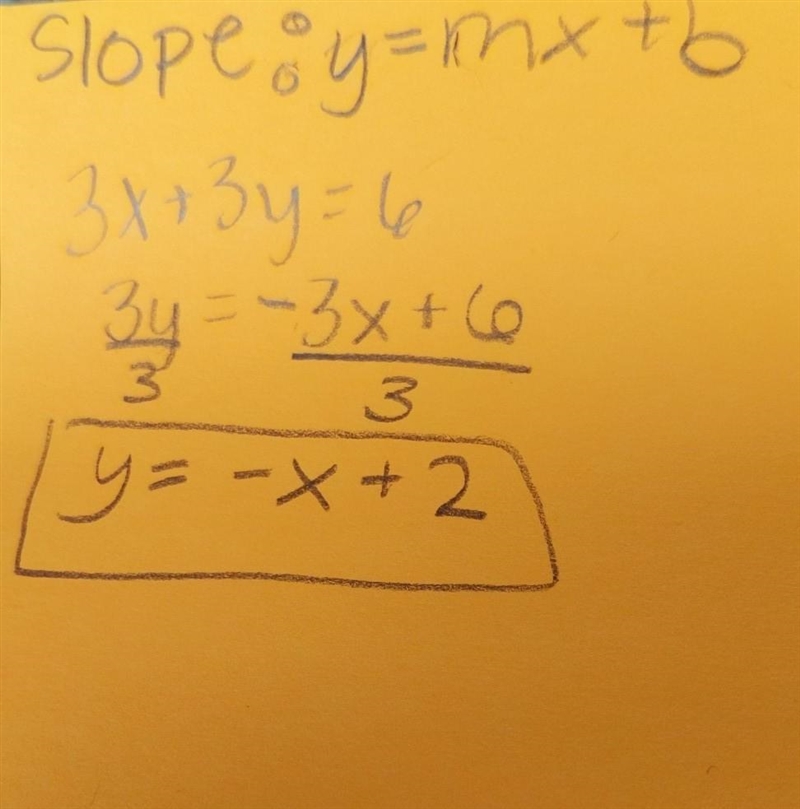 Slope: y=mx+b
3x+3y=6
3y/3 = -3x+6/3
y= -x+2